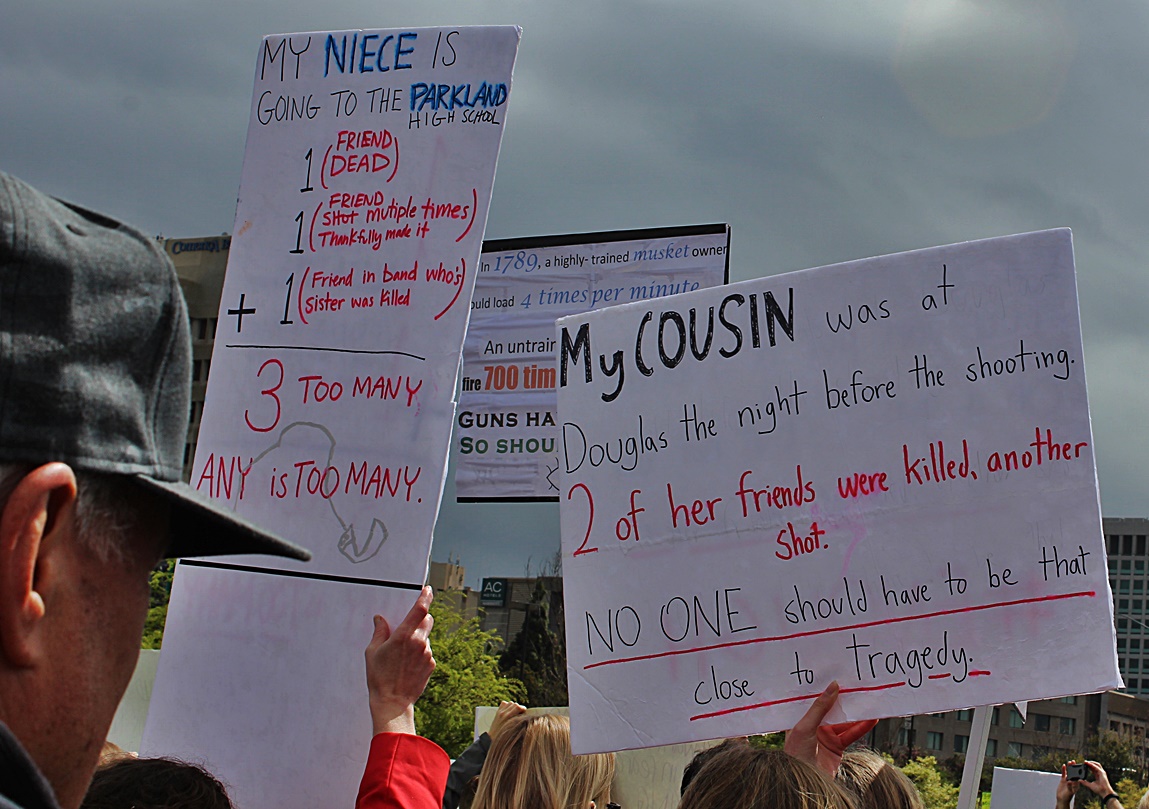 MY NIECE IS
GOING TO THE PARKLAND
HIGH SCHOOL
1 (FRIEND
DEAD)
1 (FRIEND
Shot mutiple times)
Thankfully made it
+ 1 (Friend in band who's)
sister was killed
3 TOO MANY
ANY is TOO MANY.
In 1789, a highly- trained musket owner
ould load 4 times per minute
An untrain
fire 700 tim
GUNS HA
SO SHOU
My COUSIN was at
Douglas the night before the shooting.
2 of her friends were killed, another
shot.
NO ONE should have to be that
close to Tragedy.
AC
HOTELS